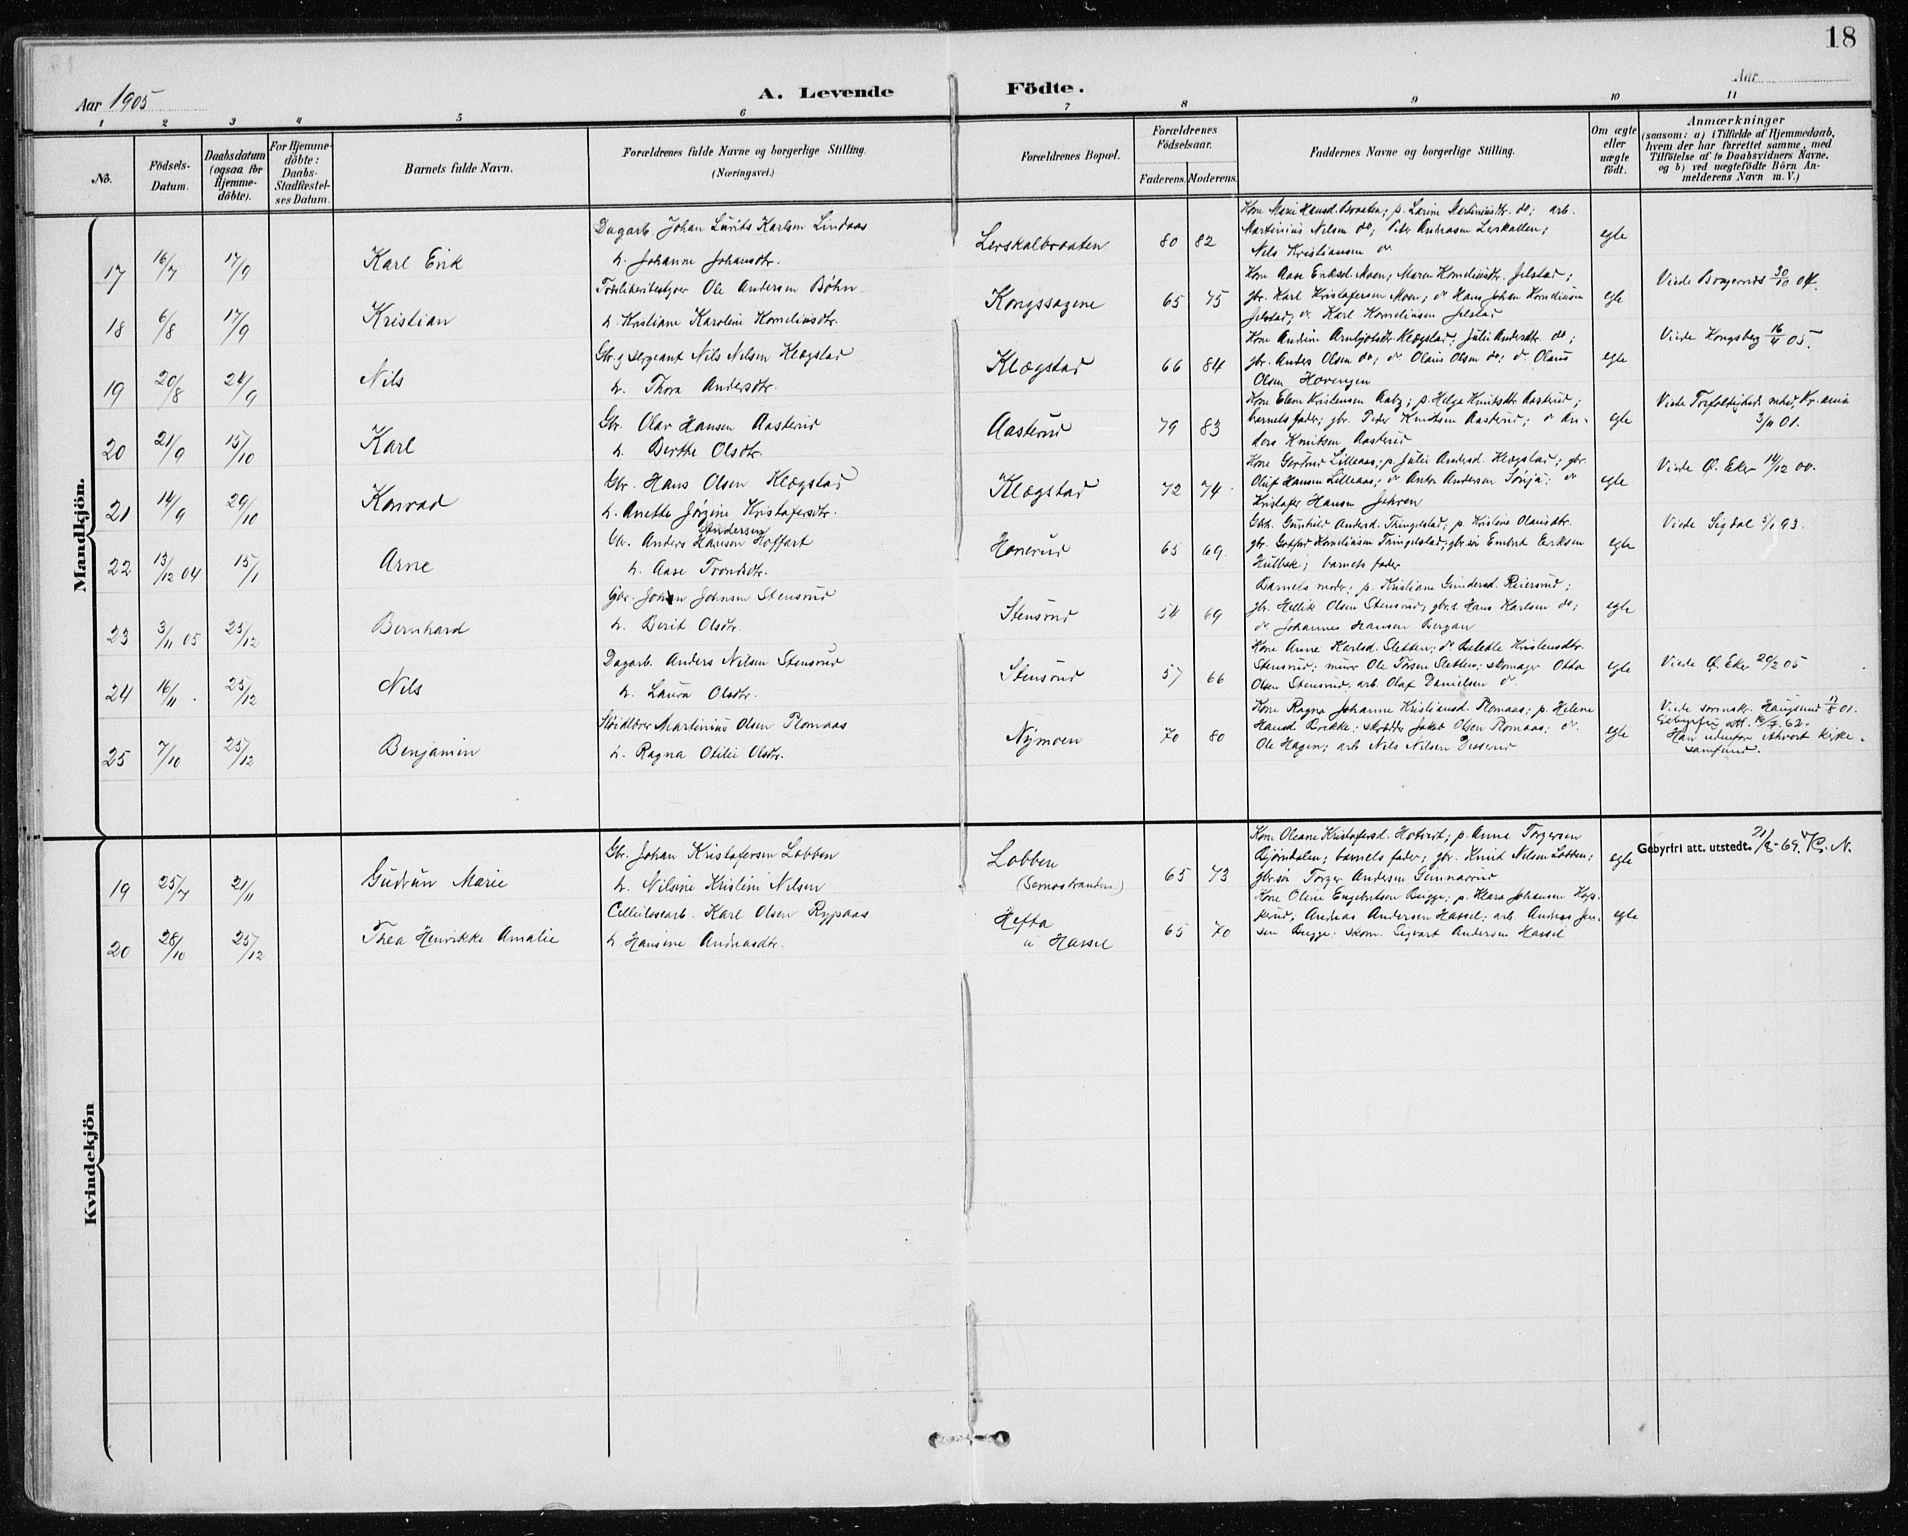 18
Aar 1905
A. Levende
Födte.
Aar
1 2 3 4 5 6 7 8 9 10 11
No.
Födsels-
Datum.
Daabsdatum
(ogsaa for
Hjemme-
döbte).
For Hjemme-
döbte:
Daabs-
Stadfæstel-
ses Datum.
Barnets fulde Navn.
Forældrenes fulde Navne og borgerlige Stilling.
(Næringsvei.)
Forældrenes Bopæl.
Forældrenes
Födselsaar.
Faderens. Moderens.
Faddernes Navne og borgerlige Stilling.
Om ægte
eller
uægte
födt.
Anmærkninger
(saasom: a) i Tilfælde af Hjemmedaab,
hvem der har forrettet samme, med
Tilföielse af to Daabsvidners Navne,
og b) ved uægtefödte Börn An-
melderens Navn m. V.)
Mandkjön.
17 16/7 17/9 Karl Erik
Dagarb. Johan Lurits Karlsen Lindaas
h. Johanne Johansdtr.
Lerskalbraaten 80 82
Kone Marie Hansd. Braaten; p. Larine Martiniusdtr. do; arb.
Martinius Nilsen do; Peter Andreasen Lerskallen;
Nils Kristiansen do
egte
18 6/8 17/9 Kristian
Ole Andersen Bøhn
h. Kristiane Karoline Korneliusdtr.
Kongssagene 65 75
Kone Aase Eriksd. Moen; Maren Korneliusdtr. Jelstad;
gbr. Karl Kristofersen Moen; do Hans Johan Korneliusen
Jelstad, do Karl Korneliusen Jelstad
egte
Viede Bragernes 30/10 04.
19 20/8 24/9 Nils
Gbr. g sergeant Nils Nilsen Klægstad
h. Thora Andersdtr.
Klægstad 66 84
Kone Andrine Klægstad; Julie Andersdtr. do;
gbr. Anders Olsen do; do Olaus Olsen do; do Olaus
Olsen Hovengen
egte
Viede Kongsberg 16/4 05.
20 21/9 15/10 Karl
Gbr. Olav Hansen Aasterud
h. Berthe Olsdtr.
Aasterud 79 83
Kone Elene Kristensen Aaby; p. Helga Knutsdtr Aasterud;
barnets fader; gbr. Peder Knutsen Aasterud; do An-
ders Knutsen Aasterud
egte
Viede Trefoldigheds mehd, Kr.ania
3/11 01.
21 14/9 29/10 Konrad
Gbr. Hans Olsen Klægstad
h. Anette Jørgine Kristofersdtr.
Klægstad 72 74
Kone Gertrud Lilleaas; p. Julie Andersd. Klægstad; gbr.
Oluf Hansen Lilleaas; do Anton Andersen; do
Kristofer Hansen
egte
Viede Ø. Eker 14/12 00.
22 13/12 04 15/1 Arne
Andersen
Gbr. Anders Hansen Hoffart
h. Aase Trondsdtr.
Honerud 65 69.
Gbk. Gunhild Andersd. Thingelstad; p. Kristine Olausdtr.
gbr. Gotfred Korneliusen Thingelstad; gbr.søn Embret Eriksen
Hulbak; barnets fader
egte
Viede Sigdal 5/1 93.
23 3/11 05 25/12 Bernhard
Gbr. Johan Johnsen Stensrud
h. Berit Olsdtr.
Stensrud 54 69
Barnets moder; p. Kristiane Gundersd. Reiersrud;
gbr. Hellik Olsen Stensrud; gbr.s Hans Karlsen do;
do Johannes Hansen Bergan
egte
24 16/11. 25/12 Nils
Dagarb. Anders Nilsen Stensrud
h. Laura Olsdtr.
Stensrud 57 66
Kone Anne Karlsd. Sletten; do Kristensdtr.
Stensrud; murer Ole Torsen Sletten; skomager Otto
Olsen Stensrud, arb. Olaf Danielsen do.
egte
Viede Ø. Eker 20/2 05
25 7/10 25/12 Benjamin
Martinius Olsen Plomaas
h. Ragna Otilie Olsdtr.
Nymoen 70 80
Kone Ragna Johanne Kristiansd. Plomaas; p. Helene
Hansd Brekke; skrædder Jakob Olsen Plomaas; do.
Ole Hagen; arb. Nils Nilsen Disserud
egte
Viede Haugsund 17/8 01.
Gebyrfri att. 62.
Han udenfor ethvert kirke-
samfund.
Kvindekjön
19 25/7 21/11 Gudrun Marie
Gbr. Johan Kristofersen Lobben
h. Nilsine Kristine Nilsen
Lobben
(Semsstranden) 65 73
Kone Oleane Kristofersd. Hotvet; p. Anna Torgersen
Bjørndalen; barnets fader; gbr. Knut Nilsen Lobben;
gbr.søn Torger Andersen Gunnarrud
egte
Gebyrfri att. utstedt. 21/8-69. K. N.
20 28/10 25/12 Thea Henrikke Amalie
Cellulosearb. Karl Olsen Rypaas
h. Hansine Andreasdtr.
Hefta
u Hassel 65 70
Kone Oline Engebretsen Bugge; p. Klara Johansen Hop-
perud; Andreas Andersen Hassel; arb. Andreas Jen-
sen Bugge; skom. Sigvart Andersen Hassel
egte